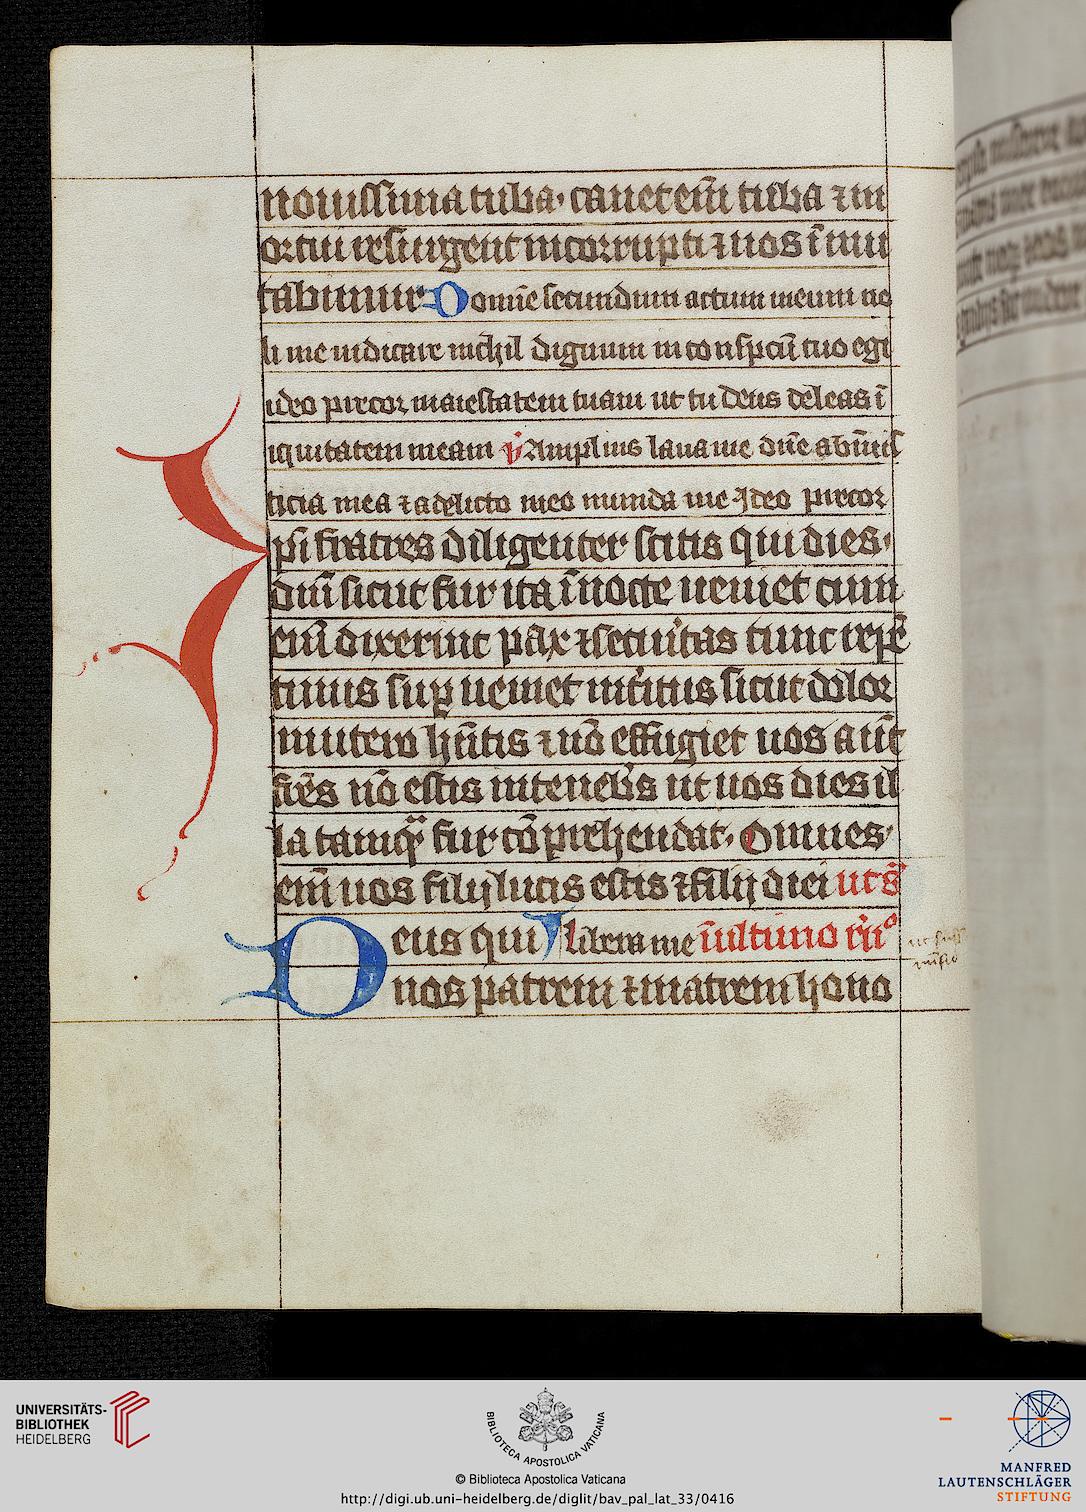 nouissima tuba· canet em̄ tuba ⁊ m
ortui resurgent incorrupti ⁊ nos ī mu
tabimur Domīe secundum actum meum no
li me iudicare nichil dignum in conspcū tuo egi
ideo precor maiestatem tuam ut tu deus deleas ī
iquitatem meam v̄ Amplius laua me dn̄e ab iniuſ
ticia mea ⁊ a delicto meo munda me Ideo precor
Ipsi fratres diligenter scitis qui dies·
dn̄i sicut fur ita ī nocte ueniet cum
enī dixerint pax ⁊ securitas tunc repē
tinus suꝑ ueniet intitus sicut dolor
in utero hn̄tis ⁊ nō effugiet uos aūt
fr̄es nō estis in tenebris ut uos dies il
la tamqͣ fur cōprehendat· Omnes
em̄ uos filij lucis estis ⁊ filij diei ut s̄
Deus qui libera me ī ultimo r̄n̄º
nos patrem ⁊ matrem hono
UNIVERSITÄTS-
BIBLIOTHEK
HEIDELBERG
BIBLIOTECA APOSTOLICA VATICANA
© Biblioteca Apostolica Vaticana
http://digi.ub.uni-heidelberg.de/diglit/bav_pal_lat_33/0416
MANFRED
LAUTENSCHLÄGER
STIFTUNG